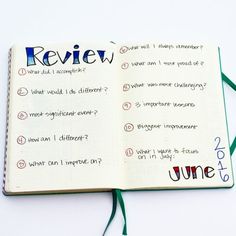 Review
1 What did I accomplish?
2 What would I do different?
3 most significant event?
4 How am I different?
5 What can I improve on?
6 What will I always remember?
7 What am I most proud of?
8 What was most challenging?
9 3 important lessons
10 Biggest improvement
11 What I want to focus
on in July:
June
2016